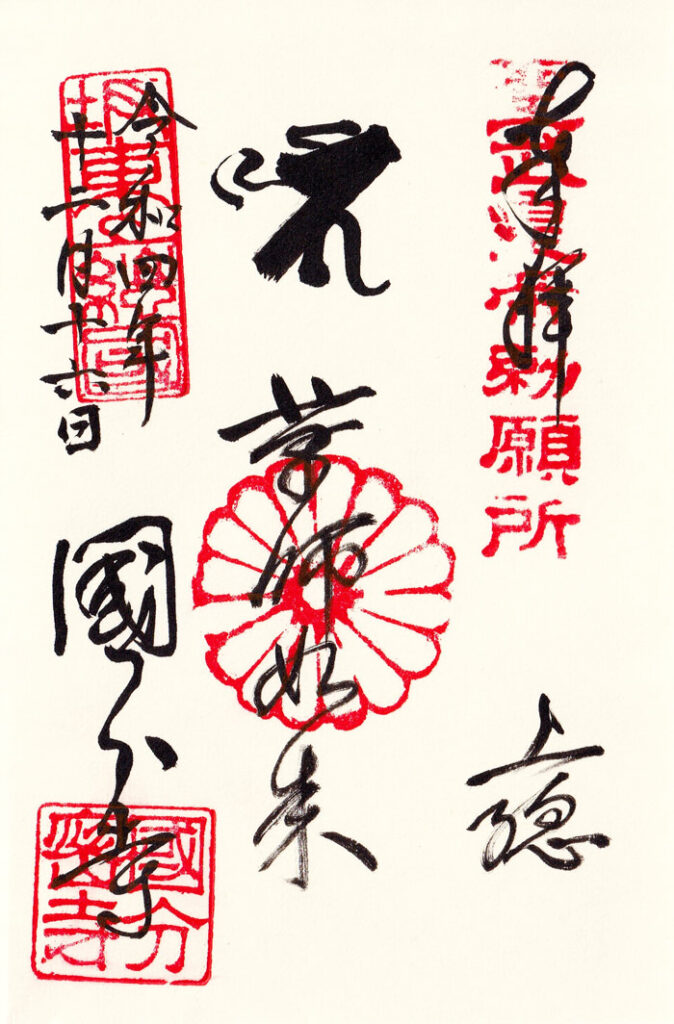 聖武天皇勅願所
奉拝
上総
薬師如来
令和四年
十二月十六日
國分寺